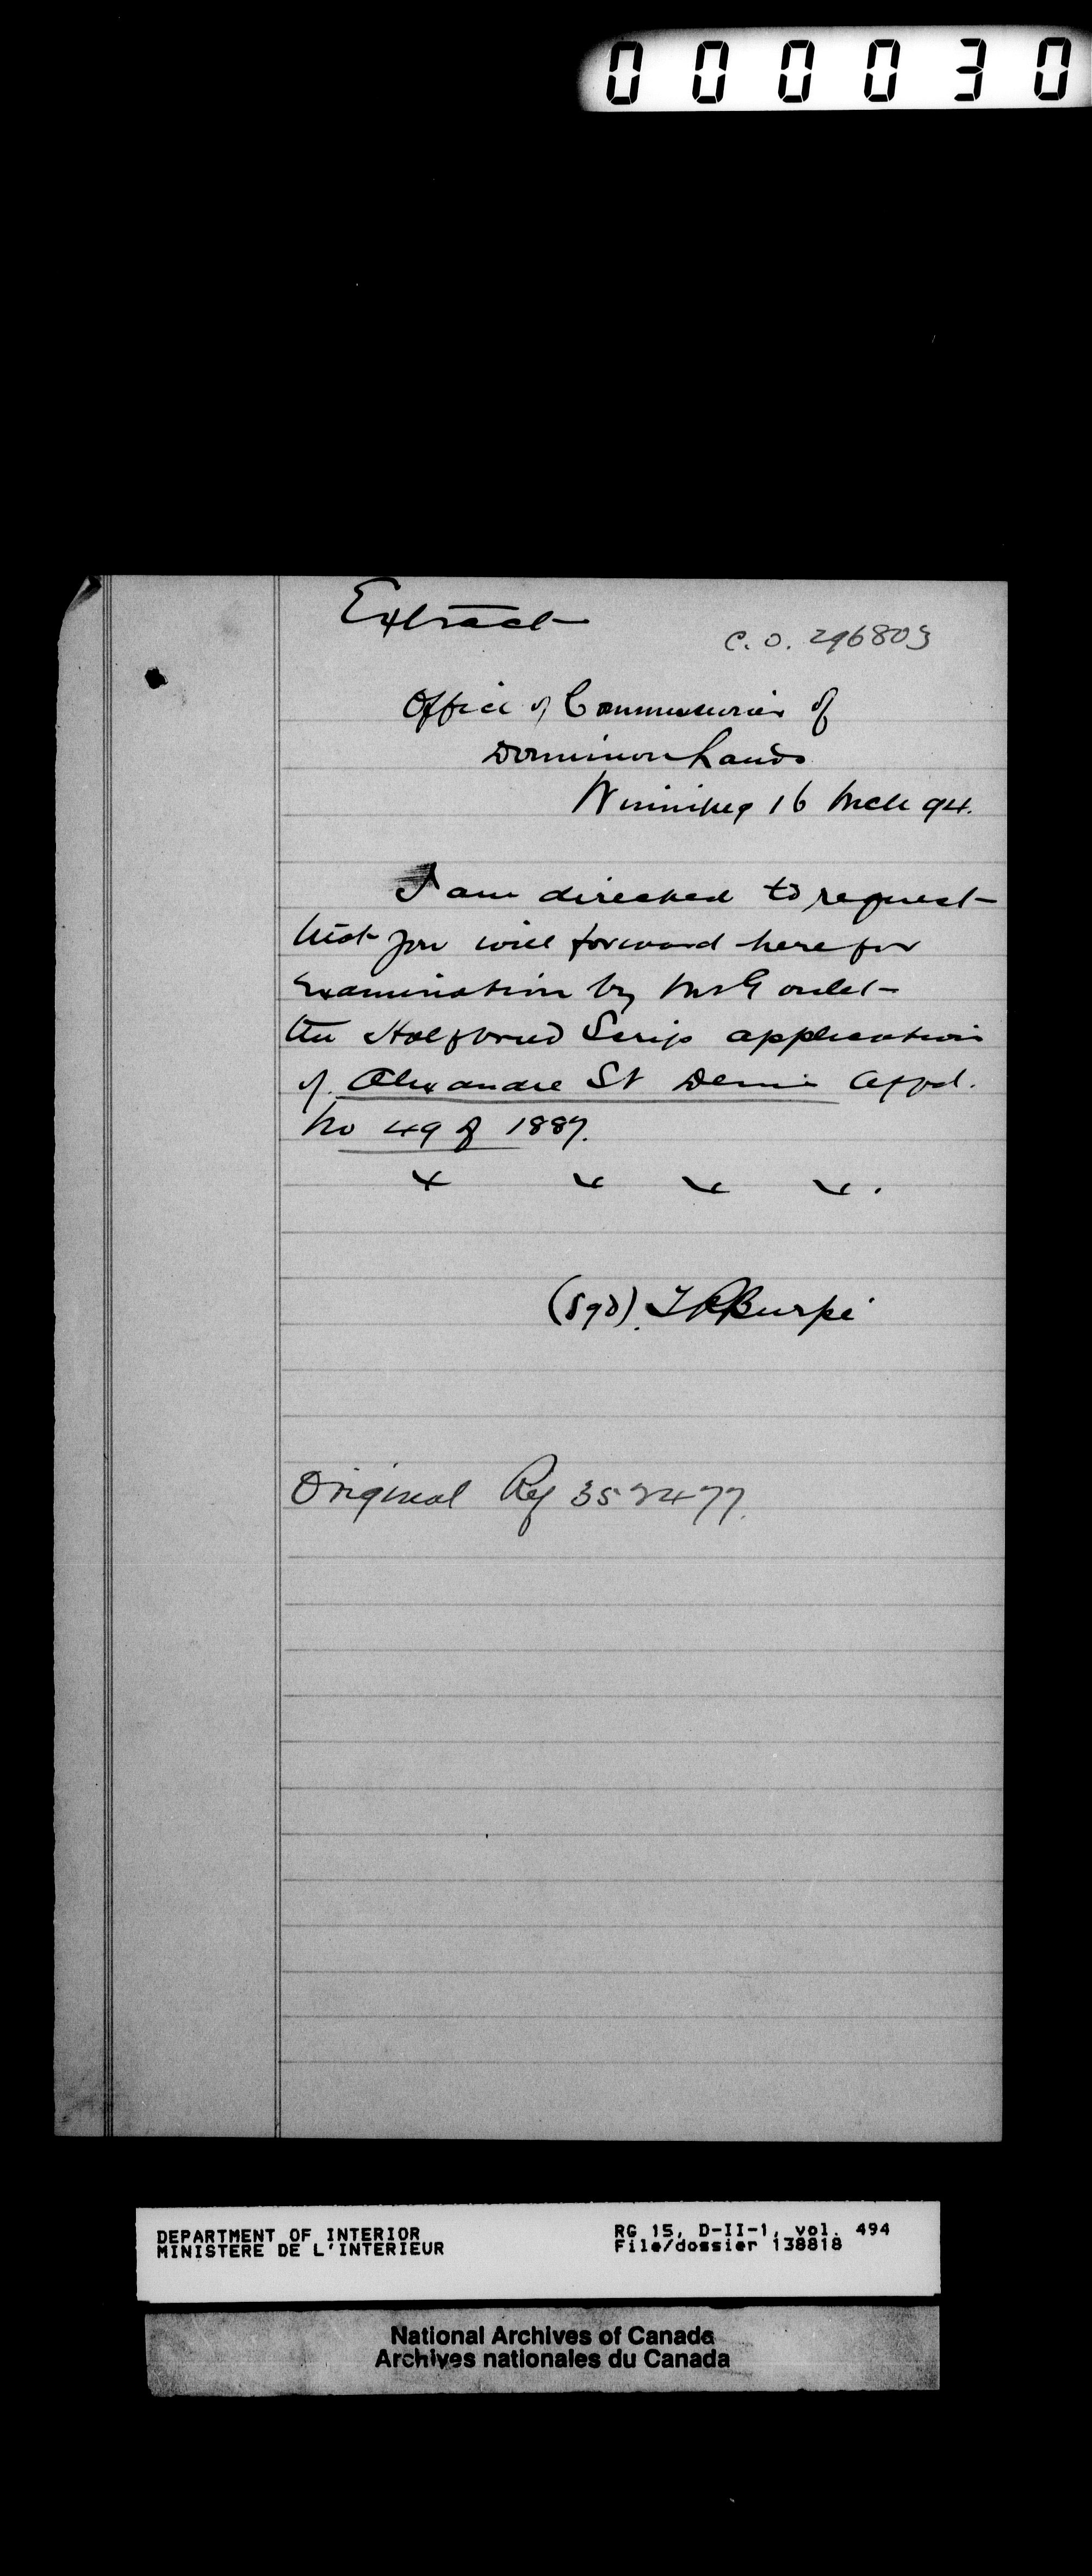 000030
Extract
C.O. 296803
Office of Commissioner of
Dominion Lands
Winnipeg 16 Mch 94.
I am directed to request
that you will forward here for
examination by Mr Goulet
the Halfbreed Scrip application
of Alexandre St Denis
No 49 of 1887.
x x x x.
(Sgd) Burpé
Original Ref 352477.
DEPARTMENT OF INTERIOR
MINISTERE DE L'INTERIEUR
RG 15, D-II-1, vol. 494
File/dossier 138818
National Archives of Canada
Archives nationales du Canada